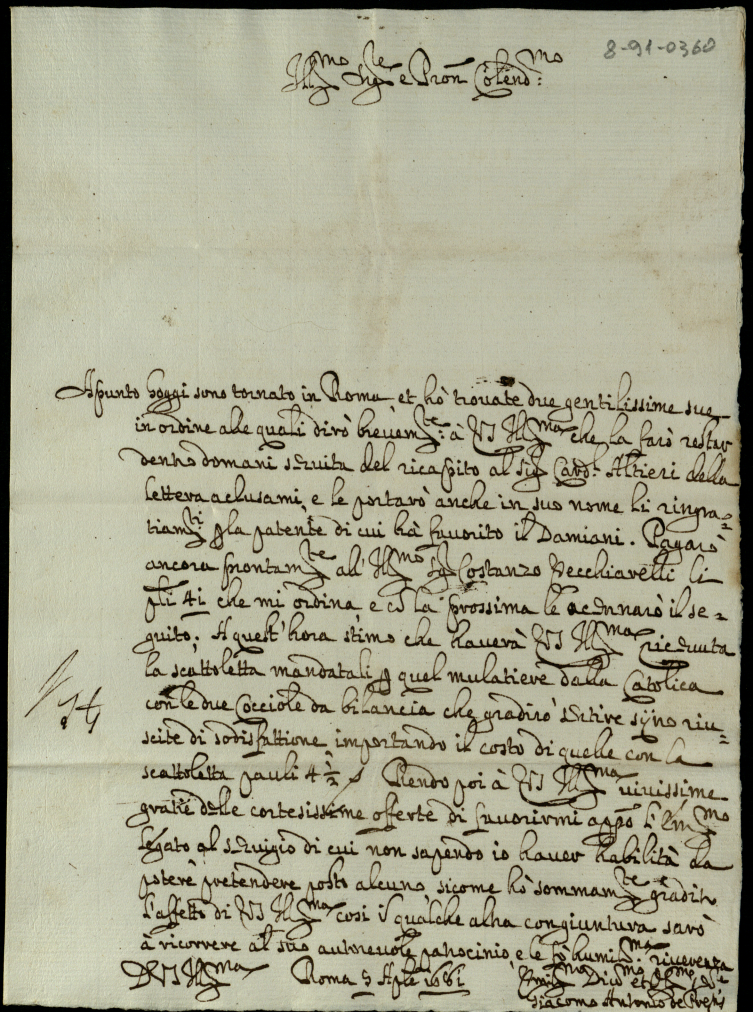 8-91-0360
Ill.mo Sig.re e Pron Colend.mo
Apunto hoggi sono tornato in Roma et hò trouate due gentilissime sue
in ordine alle quali dirò breuem.te à VS Ill.ma che la farò restar
dentro domani seruita del ricapito al Sig.r Card.l Altieri della
lettera aclusami, e le portarò anche in suo nome li ringra=
tiam.ti p la patente di cui hà fauorito il Damiani. Pagarò
ancora prontam.te all' Ill.mo Sig.r Costanzo Vecchiarelli li
che mi ordina e cō la prossima le acennarò il se=
guito. A quest'hora stimo che hauerà VS Ill.ma riceuuta
la scattoletta mandatali p quel mulatiere dalla Catolica
con le due Cocciole da bilancia che gradirò sentire sijno riu=
scite di sodisfattione importando il costo di quelle con la
scattoletta pauli 4 1/2 Rendo poi à VS Ill.ma viuissime
gratie delle cortesissime offerte di fauorirmi appō l'Em.mo
Legato al seruigio di cui non sapendo io hauer habilità da
potere pretendere posto alcuno, sicome hò sommam.te gradito
l'affetto di VS Ill.ma cosi ī qualche altra congiuntura sarò
à ricorrere al suo autoreuole patrocinio, e le fò humiliss.ma riuerenza
Di VS Ill.ma Roma 5 Aple 1681
Giacomo Antonio de